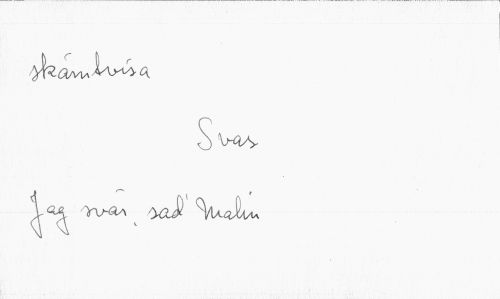 skämtvisa
Svar
Jag svär, sad' Malin